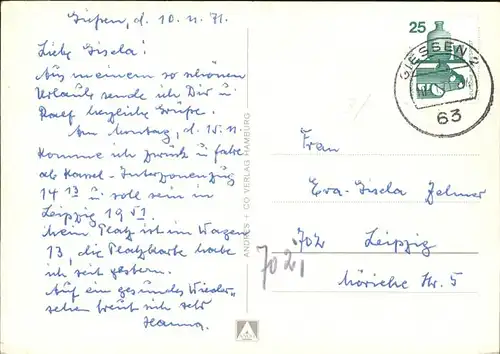 Gießen, d. 10.11.71.
Liebe Gisela!
Aus meinem so schönen
Urlaub sende ich Dir u.
Ralf herzliche Grüße.
Am Montag, d. 15.11.
komme ich zurück u. fahre
ab Kassel - Interzonenzug
14 13 u. soll sein in
Leipzig 19 51.
Mein Platz ist im Wagen
13, die Platzkarte habe
ich seit gestern.
Auf ein gesundes Wieder-
sehen freut sich sehr
Hanna.
ANDRES + CO VERLAG HAMBURG
25
GIESSEN 2
63
Frau
Eva-Gisela Zehmer
702 Leipzig
7021
Möricke Str. 5